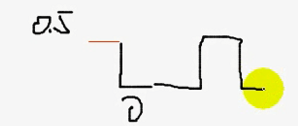 0.5
0